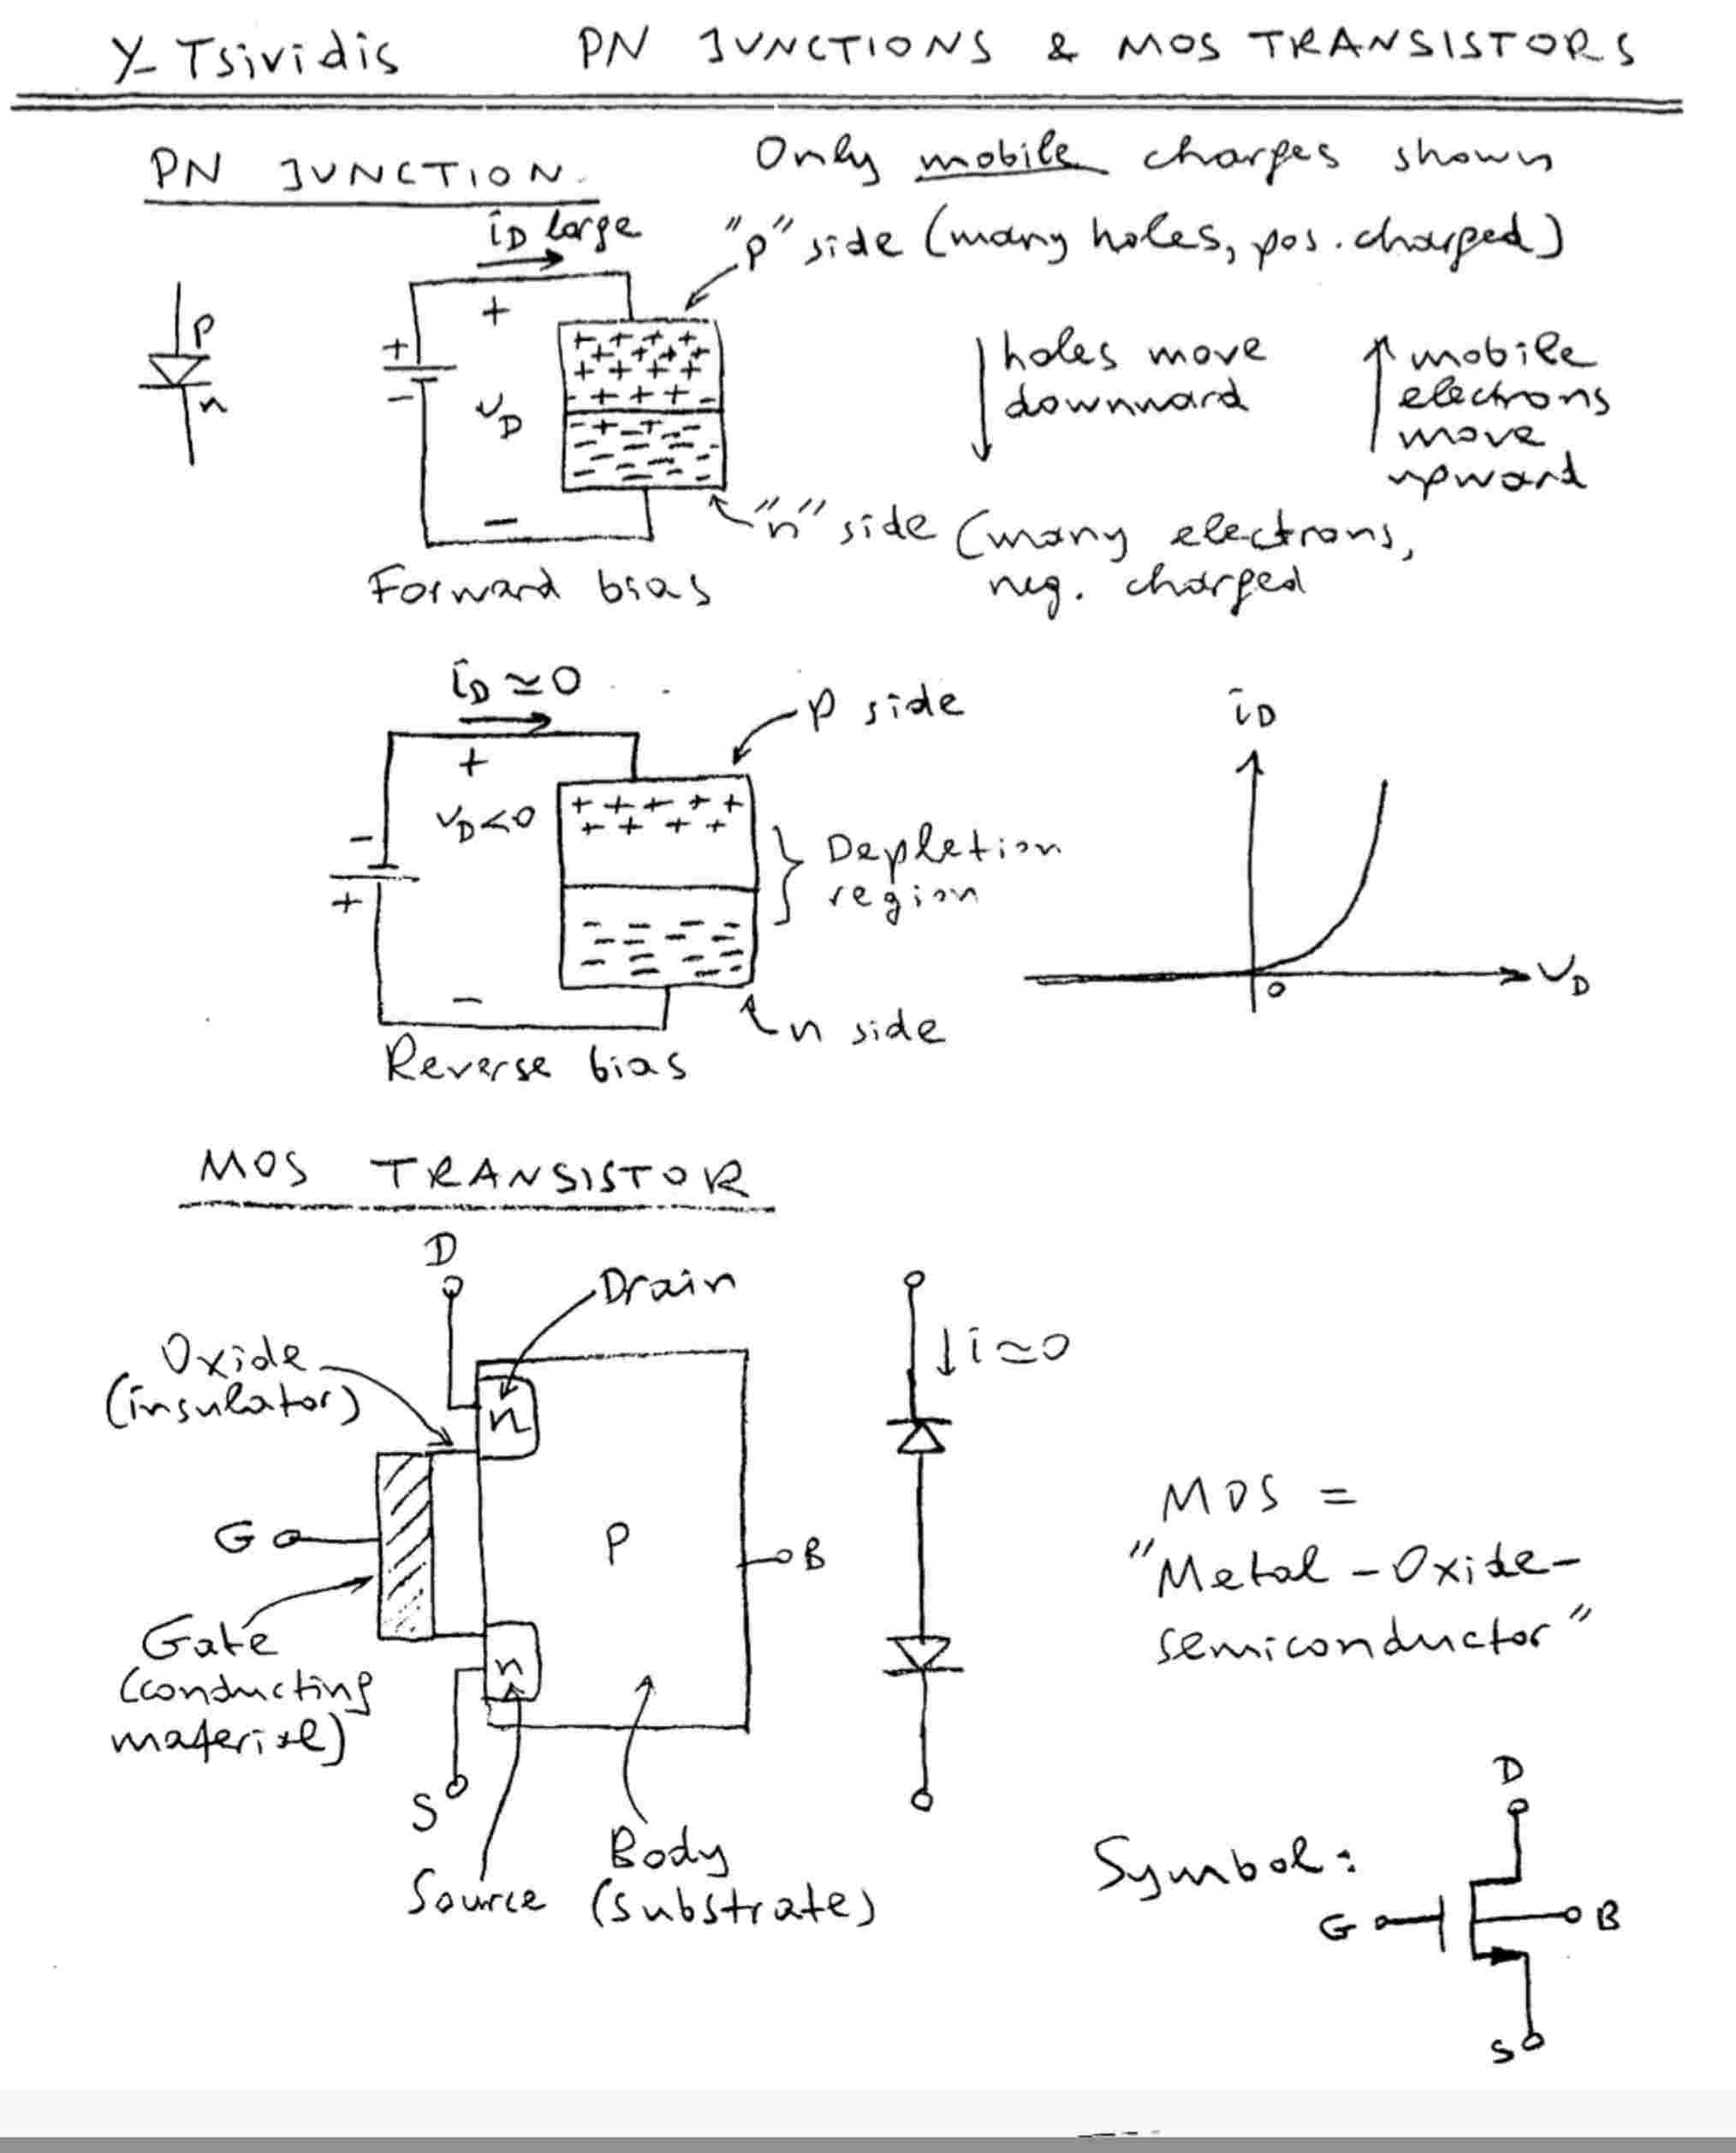 Y. Tsividis PN JUNCTIONS & MOS TRANSISTORS
PN JUNCTION
Only mobile charges shown
iD large
"p" side (many holes, pos. charged)
p
n
+
+
-
vD
-
holes move
downward
mobile
electrons
move
upward
"n" side (many electrons,
neg. charged
Forward bias
iD ≃ 0
p side
+
vD<0
-
+
-
Depletion
region
n side
Reverse bias
iD
0
vD
MOS TRANSISTOR
D
Drain
Oxide
(insulator)
n
i≃0
G
p
B
Gate
(conducting
material)
n
S
Source
Body
(substrate)
MOS =
"Metal-Oxide-
semiconductor"
Symbol:
D
G
B
S